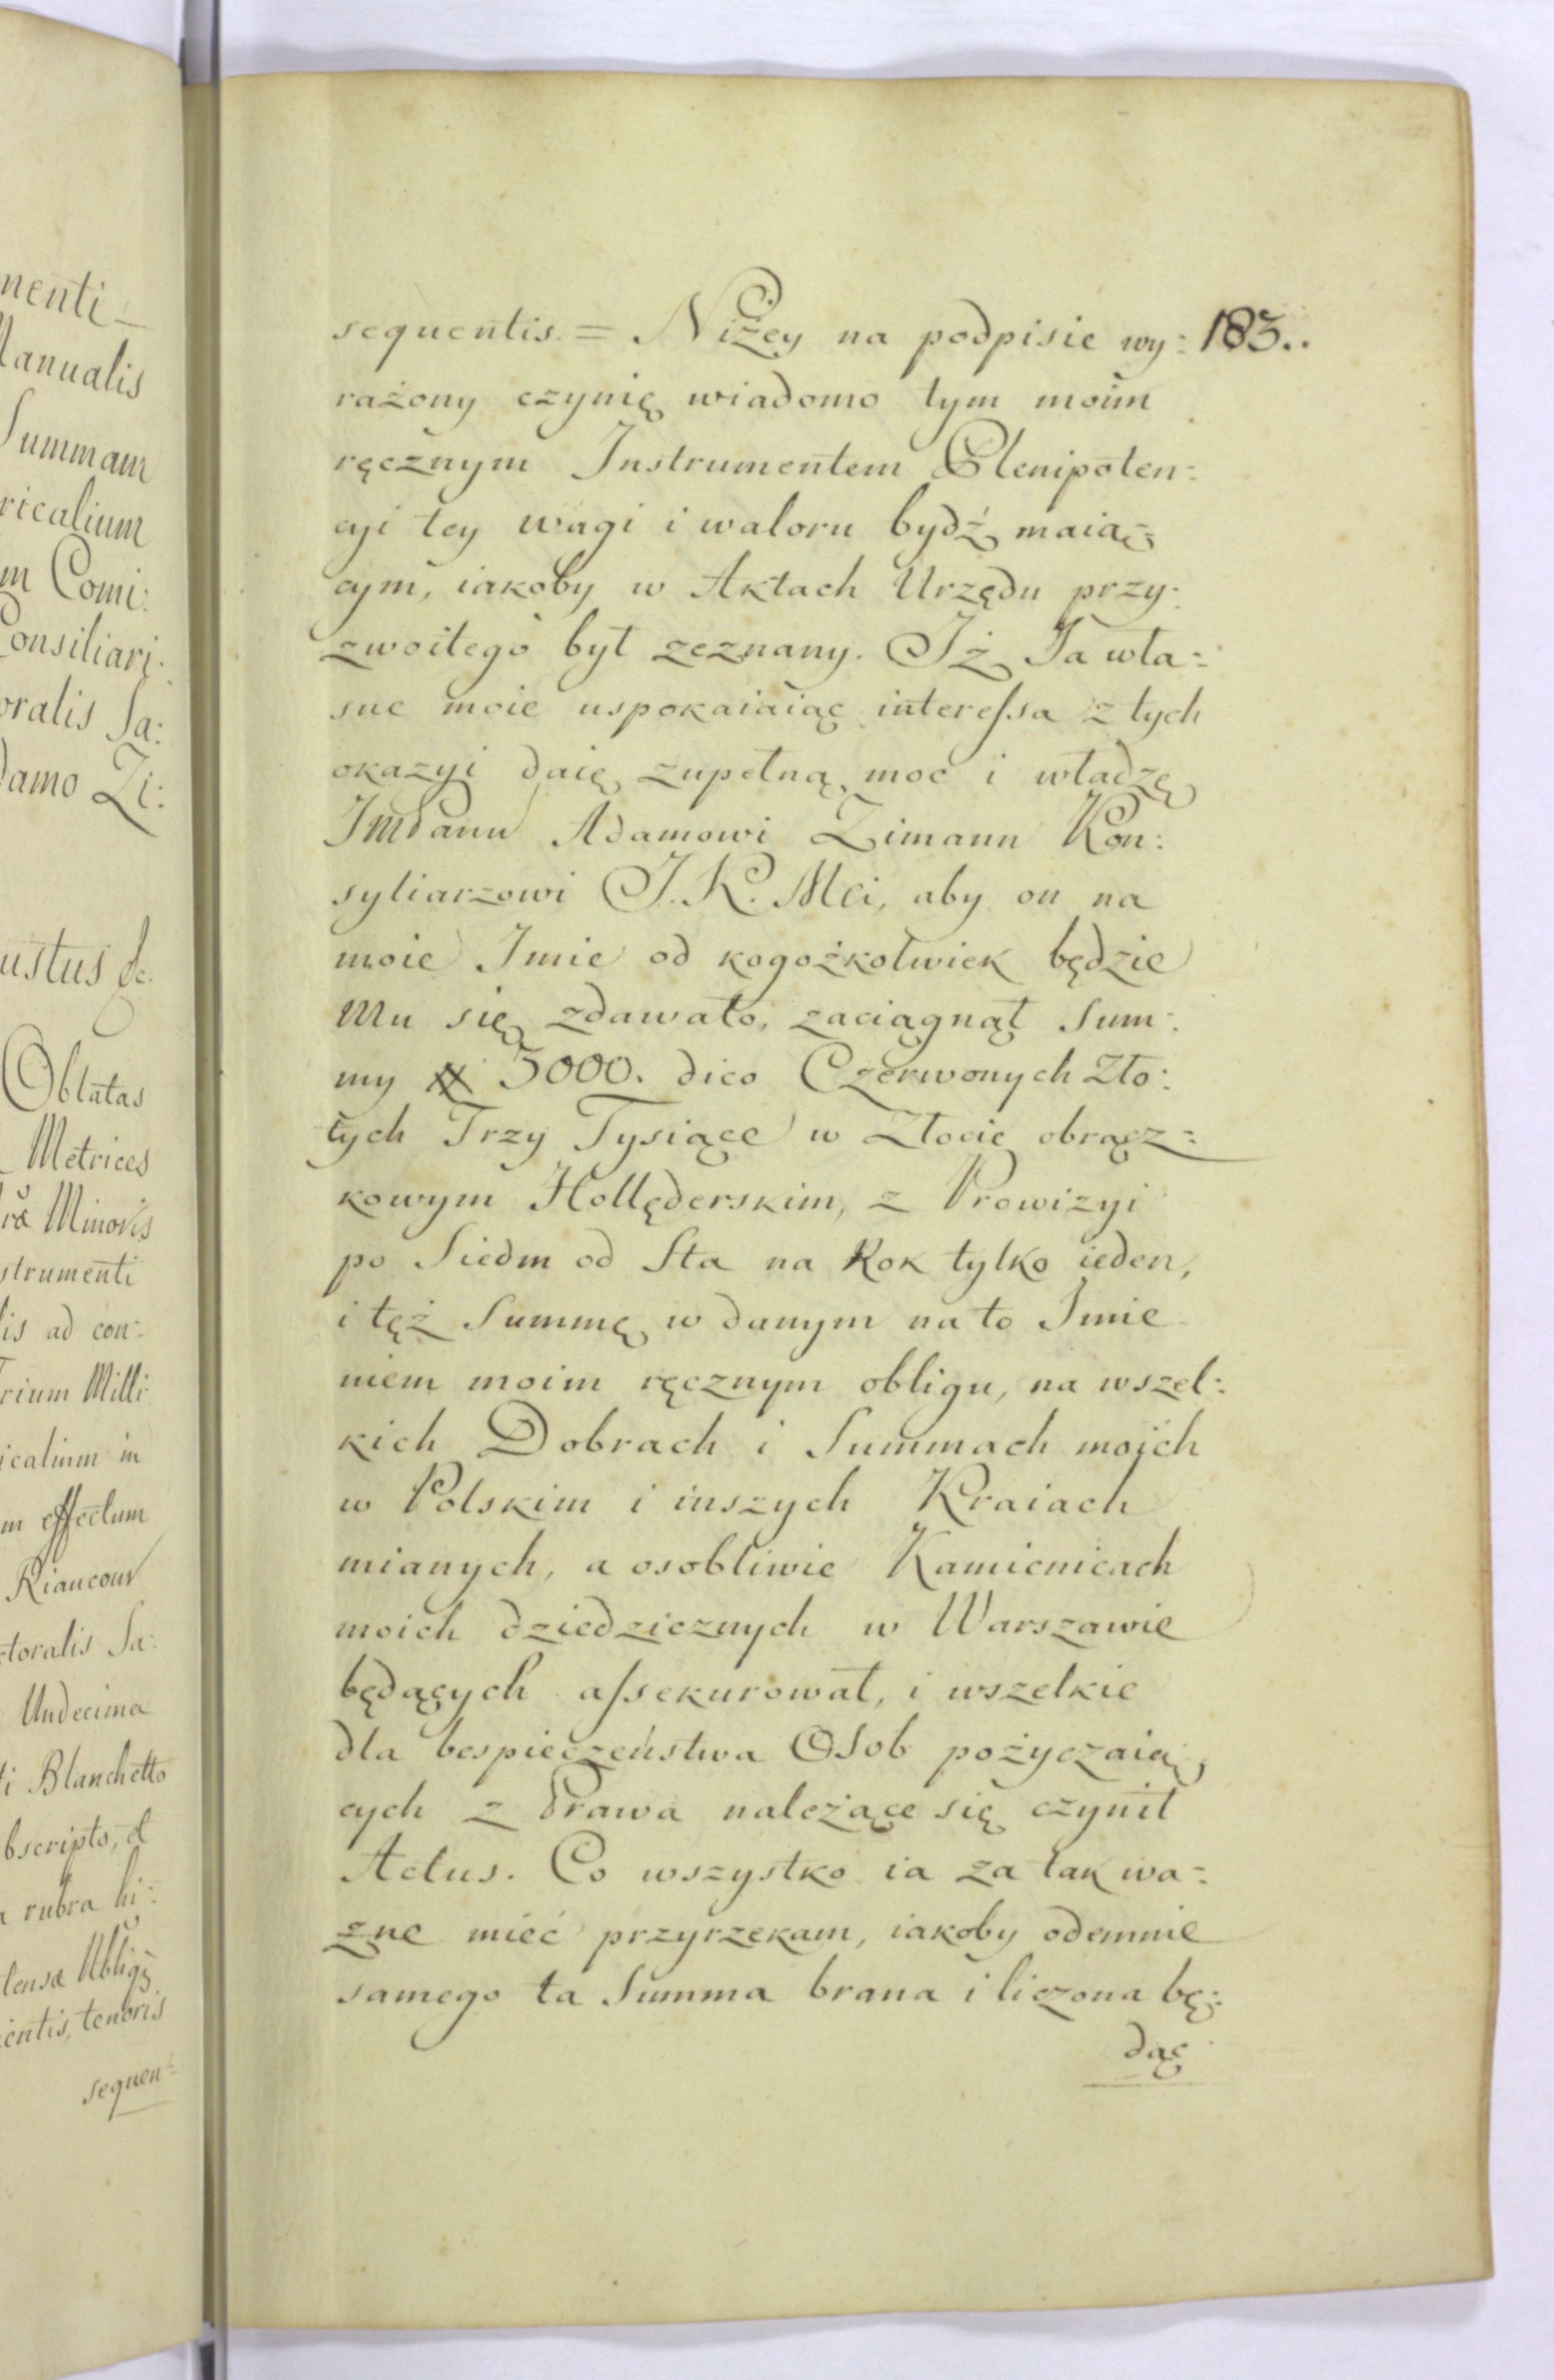 nenti
Manualis
Summam
ricalium
m Comi:
Consiliari:
oralis Sa:
damo Zi:
ustus &c.
Oblatas
Metrices
Minoris
strumenti
lis ad con:
Trium Milli
icalium in
m effectum
Riaucour
ctoralis Sa:
Undecima
ti Blanchetto
bscripto, et
a rubra hi:
lensæ Obligŷ
ientis, tenoris
sequen:
sequentis. = Niżey na podpisie wy: 183..
rażony czynię wiadomo tym moim
ręcznym Instrumentem Plenipoten:
cyi tey wagi i waloru bydź maią:
cym, iakoby w Aktach Urzędu przy:
zwoitego był zeznany. Iż Ja wła:
sne moie uspokaiaiąc interessa z tych
okazyi daię zupełną moc i władzę
ImPanu Adamowi Zimann Kon:
syliarzowi J. K. Mci, aby on na
moie Imie od kogożkolwiek będzie
Mu się zdawało, zaciągnął Sum:
my # 3000. dico Czerwonych Zło:
tych Trzy Tysiące w Złocie obrącz:
kowym Hollęderskim, z Prowizyi
po Siedm od Sta na Rok tylko ieden,
i tęż Summę w danym na to Imie
niem moim ręcznym obligu, na wszel:
kich Dobrach i Summach moich
w Polskim i inszych Kraiach
mianych, a osobliwie Kamienicach
moich dziedzicznych w Warszawie
będących assekurował, i wszelkie
dla bespieczeństwa Osob pożyczaią
cych z Prawa należące się czynił
Actus. Co wszystko ia za tak wa:
żne mieć przyrzekam, iakoby odemnie
samego ta Summa brana i liczona bę:
dąc